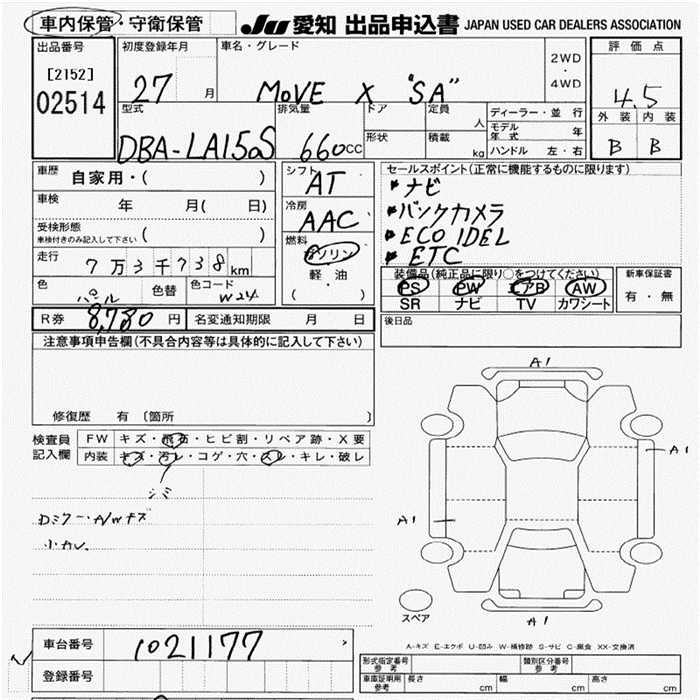 車内保管・守衛保管 JU 愛知 出品申込書 JAPAN USED CAR DEALERS ASSOCIATION
出品番号 初度登録年月 車名・グレード 2WD・4WD 評価点
[2152] 27 月 MOVE X "SA" 4.5
02514 型式 排気量 ドア 定員 人 ディーラー・並行 外装 内装
DBA-LA150S 660cc 形状 積載 kg モデル年式 年 B B
ハンドル 左・右
車歴 自家用・( ) シフト AT セールスポイント(正常に機能するものに限ります)
車検 年 月( 日) 冷房 AAC ・ナビ
受検形態 ・バックカメラ
車検付きのみ記入して下さい ( ) 燃料 ・ECO IDEL
走行 7万3千738km ガソリン ・ETC
色 パール 色替 色コード W24 軽・油 ( ) 装備品(純正品に限り○をつけてください) 新車保証書
PS PW エアB AW 有・無
SR ナビ TV カワシート
R券 8,780円 名変通知期限 月 日 後日品
注意事項申告欄(不具合内容等は具体的に記入して下さい)
修復歴 有 〔箇所 〕
検査員記入欄 FW キズ・飛石・ヒビ割・リペア跡・X要
内装 キズ・汚レ・コゲ・穴・スレ・キレ・破レ
シミ
Dミラー・A/Wキズ
小カレ
A1
A1
A1
A1
スペア
A-キズ E-エクボ U-凹み W-補修跡 S-サビ C-腐食 XX-交換済
車台番号 1021177
登録番号
形式指定番号 参考 類別区分番号 参考
車庫証明用 参考 長さ cm 幅 cm 高さ cm